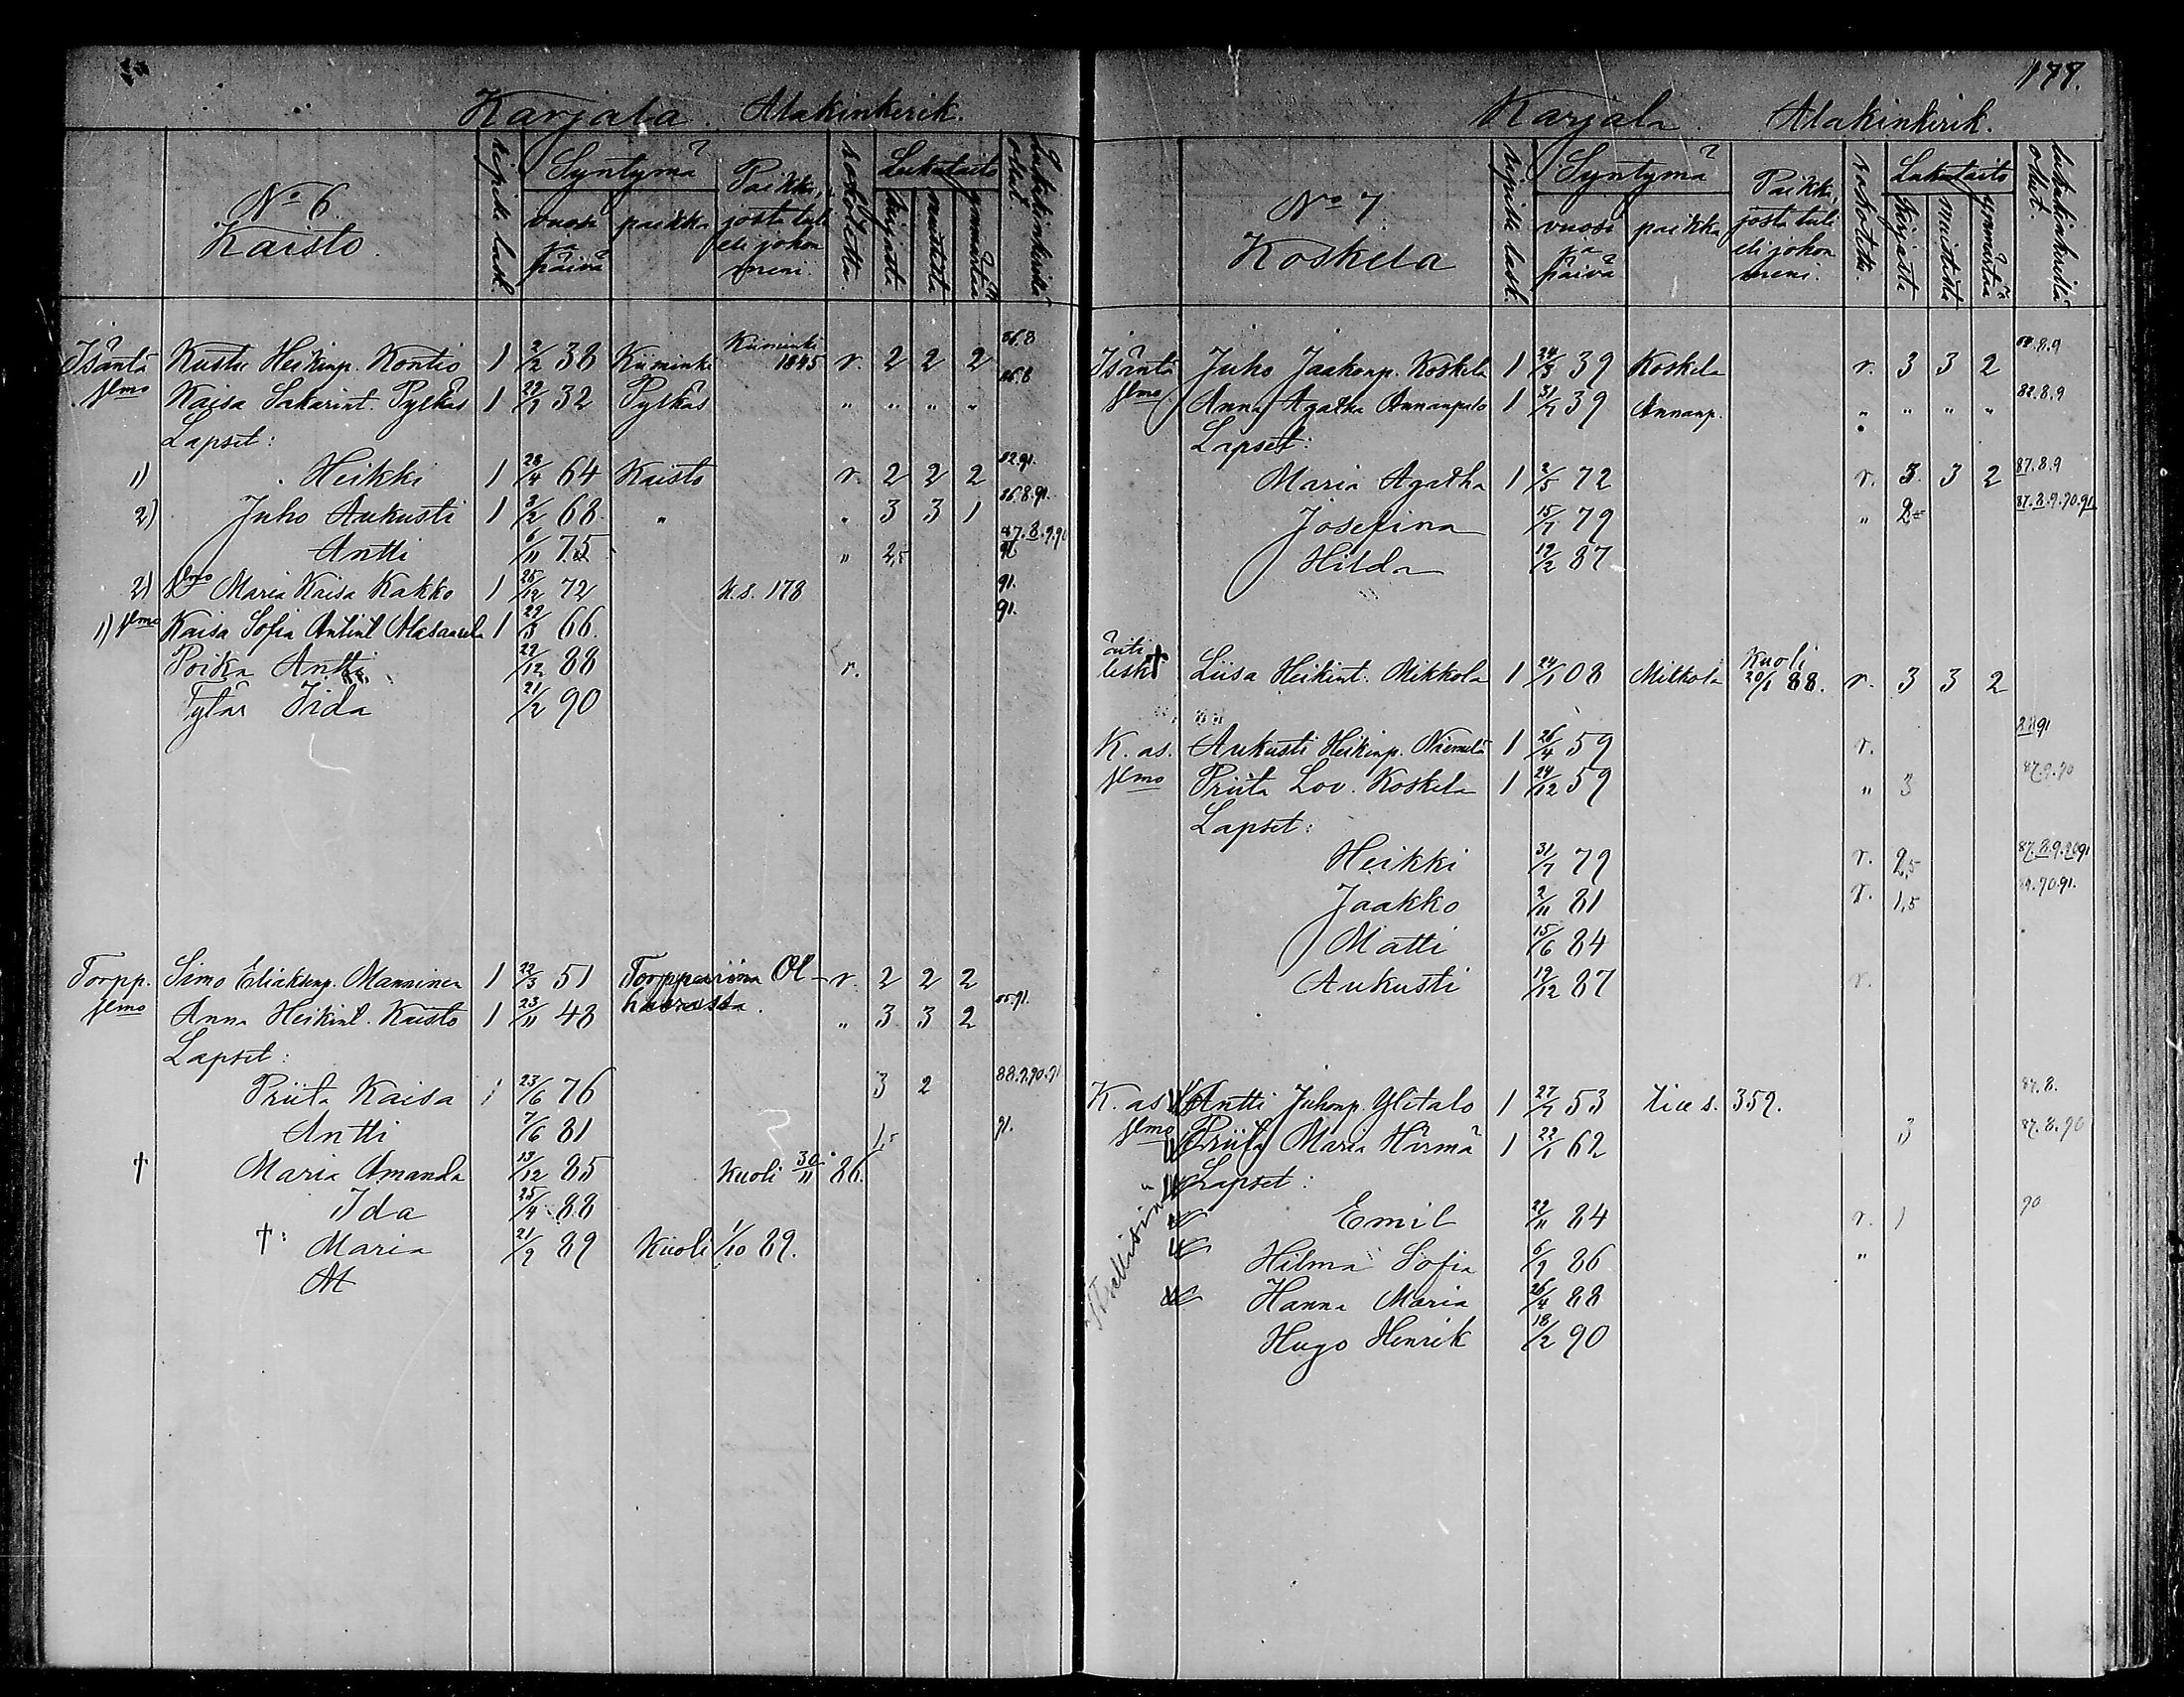 Karjala. Alakinkerik.
No 6.
Kaisto.
ripille lask.
Syntymä
vuosi ja päivä
paikka
Paikka, josta tuli eli johon meni.
rokotettu.
Lukutaito
kirjasta
muistista
ymmärtää
Lukukinkerillä ollut
Isäntä Kusta Heikinp. Kontio 1 2/2 38 Kiiminki Kiiminki 1845 r. 2 2 2 86.8
Vmo Kaisa Sakarint. Pyrkäs 1 29/9 32 Pyrkäs " " " " 86.8
Lapset:
1) Heikki 1 28/4 64 Kaisto r. 2 2 2 82.91.
2) Juho Aukusti 1 3/2 68 " " 3 3 1 86.8.91.
Antti 6/11 75 " 2,5 87.8.9.90 91
2) Vmo Maria Kaisa Kakko 1 25/12 72 K.s. 178 91.
1) Vmo Kaisa Sofia Antint. Alasaarela 1 29/3 66. 91.
Poika Antti 29/12 88 r.
Tytär Iida 21/2 90
Torpp. Simo Eliaksenp. Manninen 1 22/3 51 Torpparina Ol- r. 2 2 2
havassa.
Vmo Anna Heikint. Kaisto 1 23/11 48 " 3 3 2 85.91.
Lapset:
Priita Kaisa 1 23/6 76 3 2 88.9.90.91
Antti 7/6 81 1,5 91.
† Maria Amanda 13/12 85 Kuoli 30/11 86.
Ida 25/4 88
†: Maria 21/9 89 Kuoli 1/10 89.
177.
Karjala. Alakinkerik.
No 7.
Koskela
ripille lask.
Syntymä
vuosi ja päivä
paikka
Paikka, josta tuli eli johon meni.
rokotettu.
Lukutaito
kirjasta
muistista
ymmärtää
lukukinkerillä ollut.
Isäntä Juho Jaakonp. Koskela 1 24/3 39 Koskela r. 3 3 2 88.8.9
Vmo Anna Agatha Annanpalo 1 31/7 39 Annanp. " " " " 82.8.9
Lapset:
Maria Agatha 1 2/5 72 r. 3. 3 2 87.8.9
Josefina 15/7 79 " 2 87.8.9.90.91
Hilda 19/2 87
äiti
leski † Liisa Heikint. Mikkola 1 24/1 08 Mikkola Kuoli 20/1 88. r. 3 3 2
K. as. Aukusti Heikinp. Niemelä 1 26/4 59 r. 91
Vmo Priita Lov. Koskela 1 24/12 59 " 3 87.9.90
Lapset:
Heikki 31/7 79 r. 2,5 87.8.9.90.91
Jaakko 2/11 81 r. 1,5 89.90.91.
Matti 15/6 84
Aukusti 19/12 87 r.
K. as Antti Juhonp. Ylitalo 1 27/7 53 Lue s. 359. 87.8.
Vmo Priita Maria Härmä 1 22/1 62 3 87.8.90
Lapset:
Emil 22/11 84 r. 1 90
Hilma Sofia 6/9 86 "
Hanna Maria 26/4 88
Hugo Henrik 18/2 90